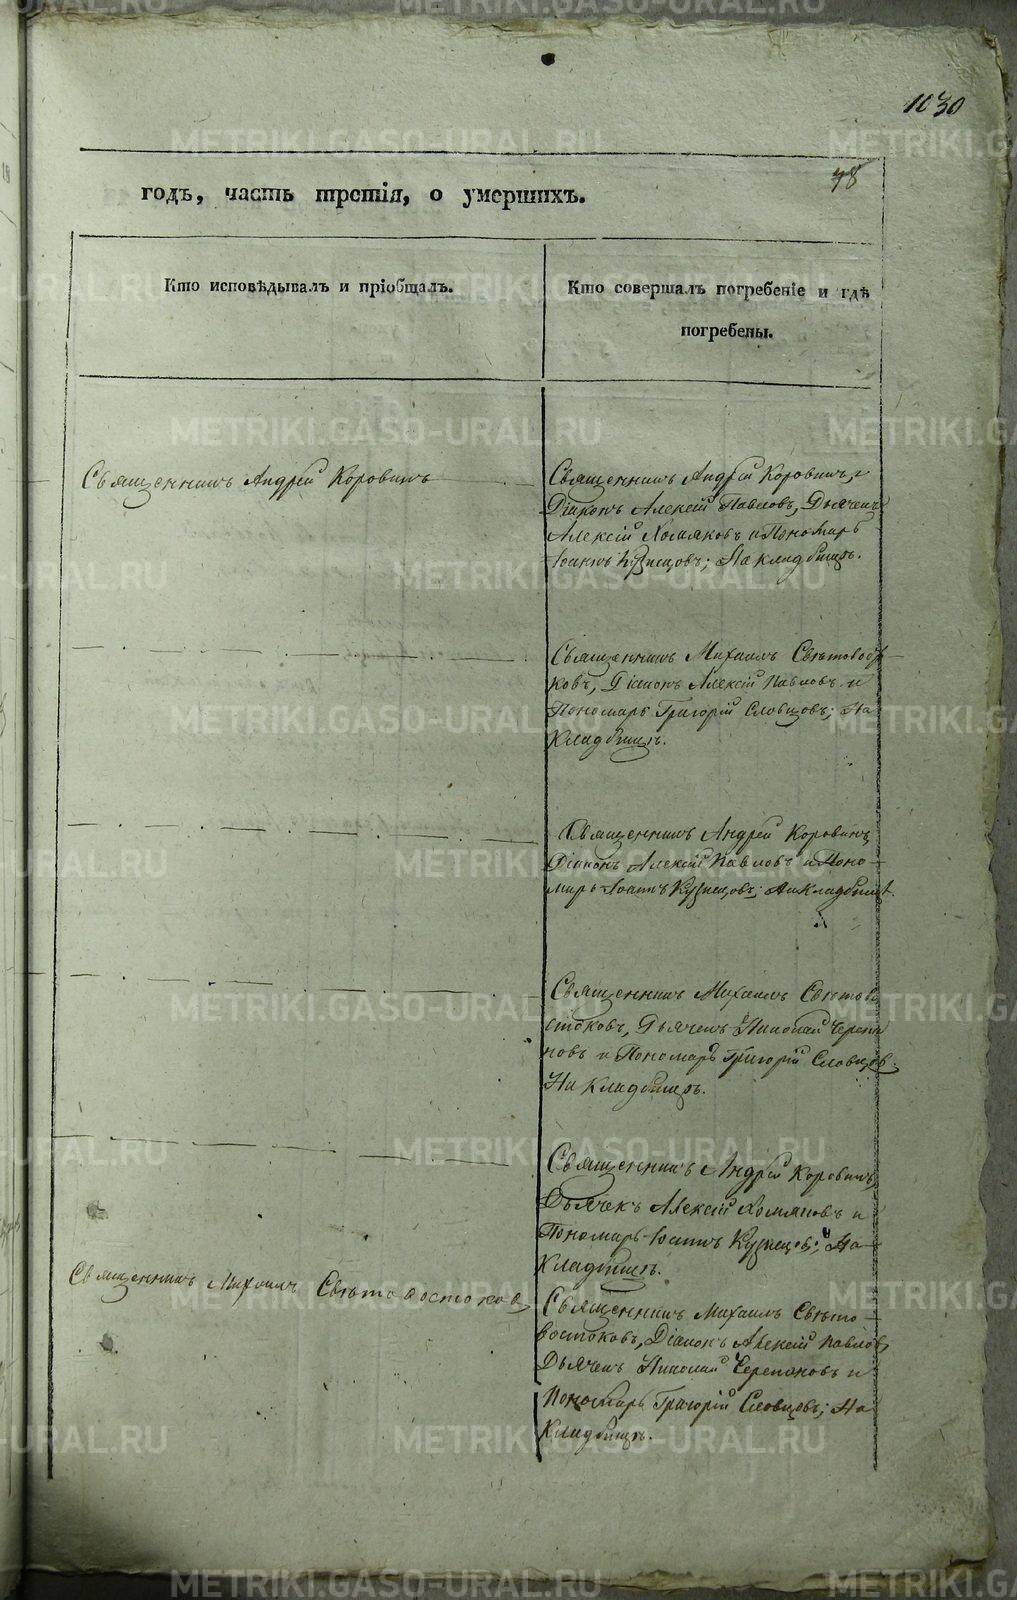 1030
78
годъ, часть третія, о умершихъ.
Кто исповѣдывалъ и пріобщалъ.
Кто совершалъ погребеніе и гдѣ
погребены.
Священникъ Андрей Коровинъ
Священникъ Андрей Коровинъ, и
Діаконъ Алексій Павловъ, Дьячекъ
Алексій Хомяковъ и Пономарь
Іоаннъ Кузнецовъ; На кладбищѣ.
Священникъ Михаилъ Свѣтовосто
ковъ, Діаконъ Алексій Павловъ и
Пономарь Григорій Словцовъ; На
Кладбищѣ.
Священникъ Андрей Коровинъ
Діаконъ Алексій Павловъ и Поно-
марь Іоаннъ Кузнецовъ; На Кладбищѣ.
Священникъ Михаилъ Свѣтово
стоковъ, Дьячекъ Николай Черепа
новъ и Пономарь Григорій Словцов.
На Кладбищѣ.
Священникъ Андрей Коровинъ,
Дьячекъ Алексій Хомяковъ и
Пономарь Іоаннъ Кузнецовъ; На
Кладбищѣ.
Священникъ Михаилъ Свѣтовостоков
Священникъ Михаилъ Свѣто-
востоковъ, Діаконъ Алексій Павловъ,
Дьячекъ Николай Черепановъ и
Пономарь Григорій Словцовъ; На
Кладбищѣ.
METRIKI.GASO-URAL.RU